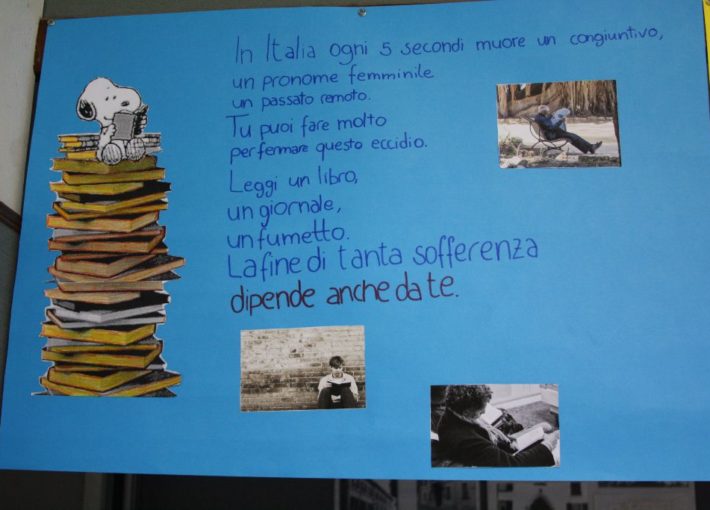 In Italia ogni 5 secondi muore un congiuntivo,
un pronome femminile
un passato remoto.
Tu puoi fare molto
per fermare questo eccidio.
Leggi un libro,
un giornale,
un fumetto.
La fine di tanta sofferenza
dipende anche da te.